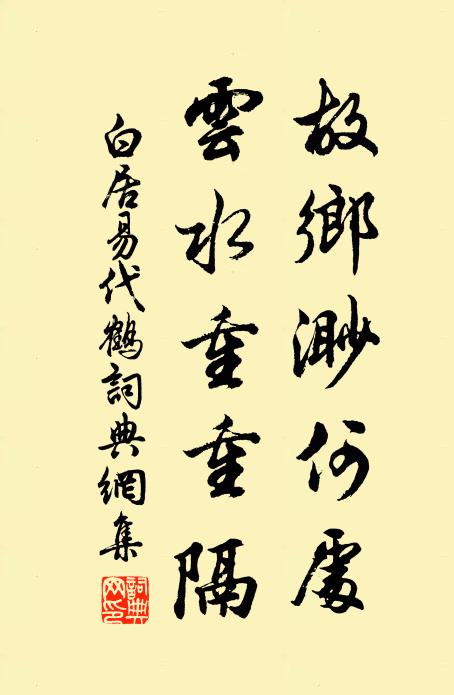 故鄉渺何處
雲水重重隔
白居易代鶴詞典網集
詞典網印